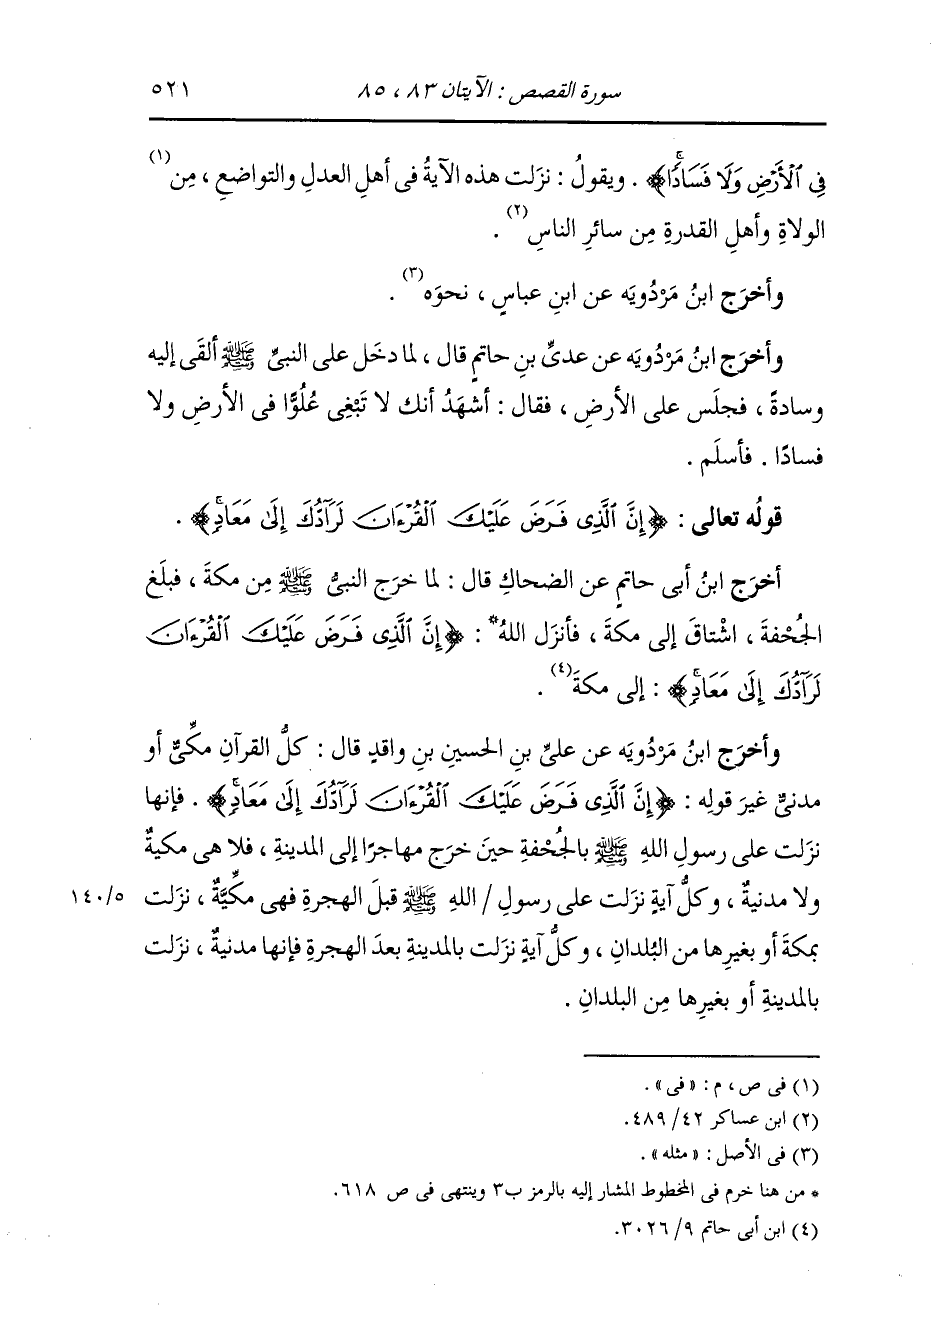 سورة القصص : الآيتان ٨٣ ، ٨٥ ٥٢١
فِى ٱلْأَرْضِ وَلَا فَسَادًاۚ﴾ . ويقولُ : نزَلت هذه الآيةُ فى أهلِ العدلِ والتواضعِ ، مِن(١)
الولاةِ وأهلِ القدرةِ مِن سائرِ الناسِ(٢) .
وأخرَج ابنُ مَرْدُويَه عن ابنِ عباسٍ ، نحوَه(٣) .
وأخرَج ابنُ مَرْدُويَه عن عدىِّ بنِ حاتمٍ قال ، لما دخَل على النبىِّ ﷺ ألقَى إليه
وسادةً ، فجلَس على الأرضِ ، فقال : أشهَدُ أنك لا تَبْغِى عُلُوًّا فى الأرضِ ولا
فسادًا . فأسلَم .
قولُه تعالى : ﴿إِنَّ ٱلَّذِى فَرَضَ عَلَيْكَ ٱلْقُرْءَانَ لَرَآدُّكَ إِلَىٰ مَعَادٍۚ﴾ .
أخرَج ابنُ أبى حاتمٍ عن الضحاكِ قال : لما خرَج النبىُّ ﷺ مِن مكةَ ، فبلَغ
الجُحْفةَ ، اشْتاقَ إلى مكةَ ، فأنزَل اللهُ* : ﴿إِنَّ ٱلَّذِى فَرَضَ عَلَيْكَ ٱلْقُرْءَانَ
لَرَآدُّكَ إِلَىٰ مَعَادٍۚ﴾ : إلى مكةَ(٤) .
وأخرَج ابنُ مَرْدُويَه عن علىِّ بنِ الحسينِ بنِ واقدٍ قال : كلُّ القرآنِ مكِّىٌّ أو
مدنىٌّ غيرَ قولِه : ﴿إِنَّ ٱلَّذِى فَرَضَ عَلَيْكَ ٱلْقُرْءَانَ لَرَآدُّكَ إِلَىٰ مَعَادٍۚ﴾ . فإنها
نزَلت على رسولِ اللهِ ﷺ بالجُحْفةِ حينَ خرَج مهاجرًا إلى المدينةِ ، فلا هى مكيةٌ
ولا مدنيةٌ ، وكلُّ آيةٍ نزَلت على رسولِ / اللهِ ﷺ قبلَ الهجرةِ فهى مكِّيَّةٌ ، نزَلت ١٤٠/٥
بمكةَ أو بغيرِها من البُلدانِ ، وكلُّ آيةٍ نزَلت بالمدينةِ بعدَ الهجرةِ فإنها مدنيةٌ ، نزَلت
بالمدينةِ أو بغيرِها مِن البلدانِ .
(١) فى ص ، م : « فى » .
(٢) ابن عساكر ٤٢/ ٤٨٩.
(٣) فى الأصل : « مثله » .
* من هنا خرم فى المخطوط المشار إليه بالرمز ب٣ وينتهى فى ص ٦١٨.
(٤) ابن أبى حاتم ٩/ ٣٠٢٦.